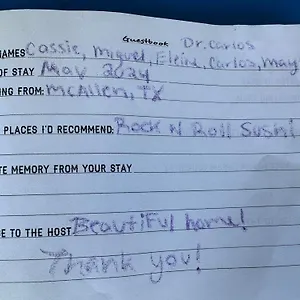 Guestbook Dr. Carlos
NAMES Cassie, Miguel, Eleine, Carlos, May
OF STAY May 2024
ING FROM: McAllen, TX
PLACES I'D RECOMMEND: Rock N Roll Sushi
TE MEMORY FROM YOUR STAY
E TO THE HOST. Beautiful home!
Thank you!